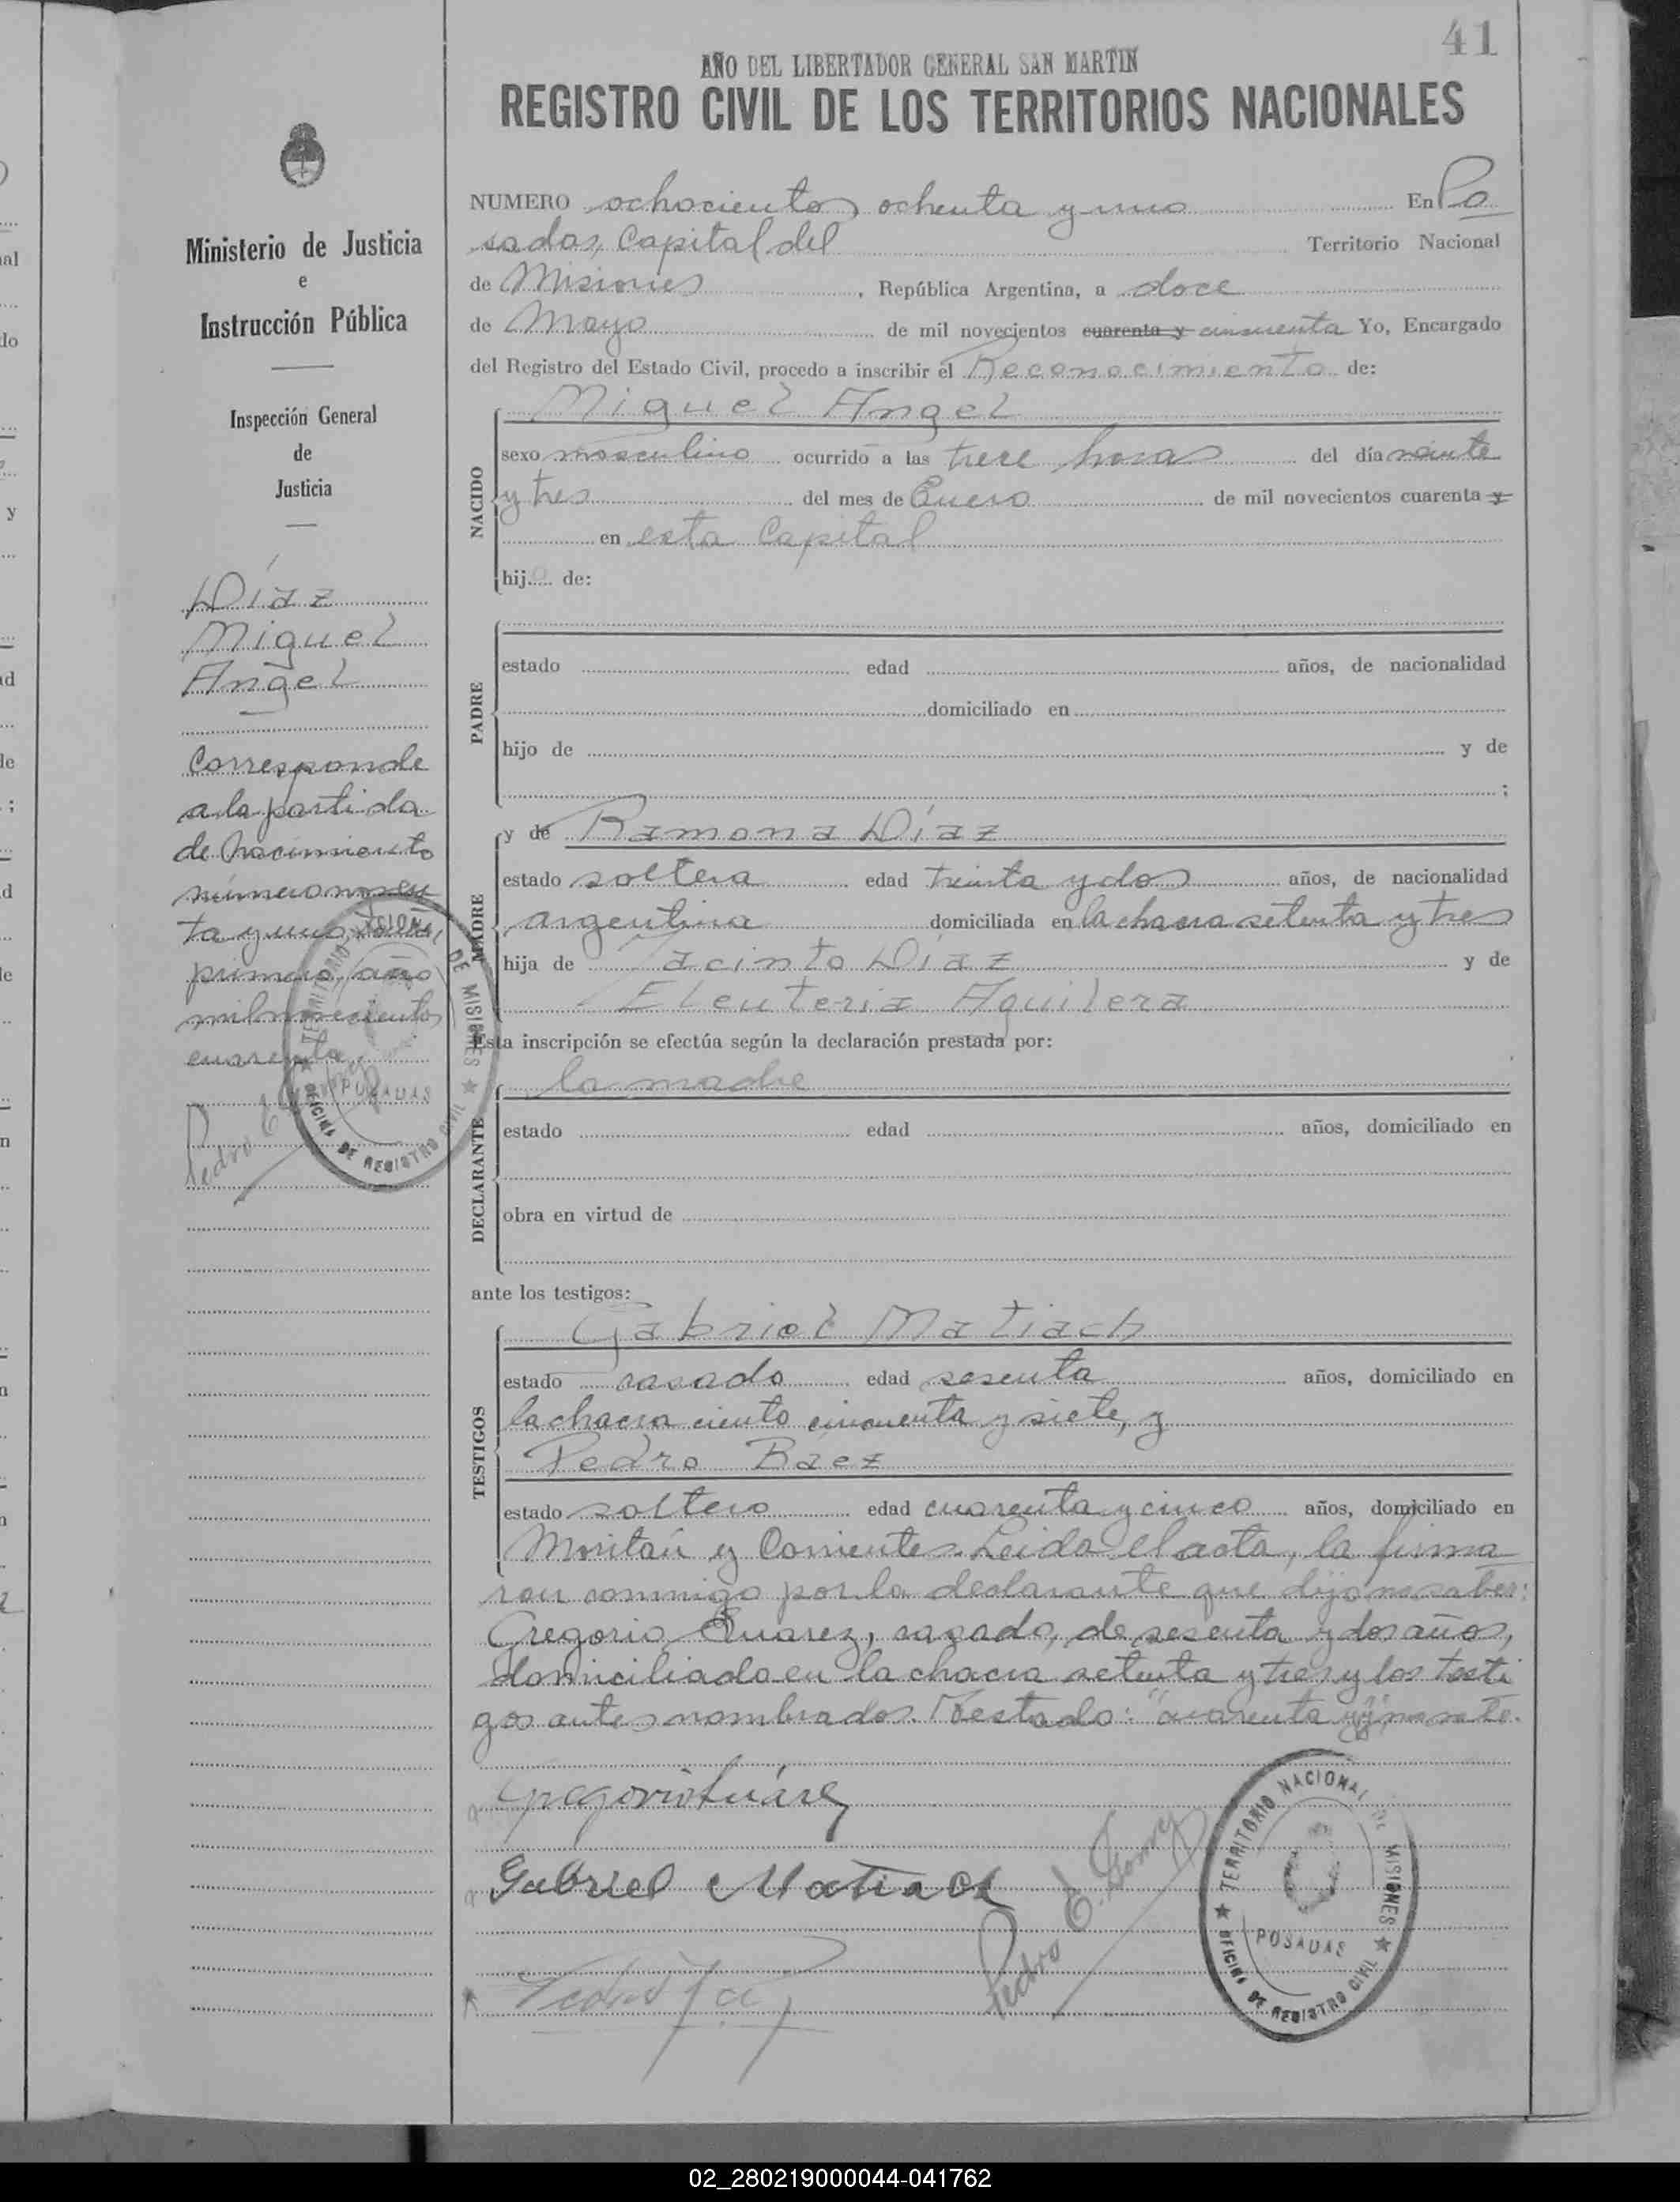 41
AÑO DEL LIBERTADOR GENERAL SAN MARTIN
REGISTRO CIVIL DE LOS TERRITORIOS NACIONALES
Ministerio de Justicia
e
Instrucción Pública
Inspección General
de
Justicia
Díaz
Miguel
Angel
Corresponde
a la partida
de Nacimiento
número noven
ta y uno, tomo
primero, año
mil novecientos
cuarenta.
Pedro E. Gomez
NUMERO ochocientos ochenta y uno En Po
sadas, Capital del Territorio Nacional
de Misiones, República Argentina, a doce
de Mayo de mil novecientos cuarenta y cincuenta Yo, Encargado
del Registro del Estado Civil, procedo a inscribir el Reconocimiento de:
NACIDO
Miguel Angel
sexo masculino ocurrido a las trece horas del día veinte
y tres del mes de Enero de mil novecientos cuarenta y
en esta Capital
hijo de:
PADRE
estado edad años, de nacionalidad
domiciliado en
hijo de y de
;
MADRE
y de Ramona Díaz
estado soltera edad treinta y dos años, de nacionalidad
argentina domiciliada en la chacra setenta y tres
hija de Jacinto Díaz y de
Eleuteria Aguilera
Esta inscripción se efectúa según la declaración prestada por:
DECLARANTE
la madre
estado edad años, domiciliado en
obra en virtud de
ante los testigos:
TESTIGOS
Gabriel Matiach
estado casado edad sesenta años, domiciliado en
la chacra ciento cincuenta y siete, y
Pedro Báez
estado soltero edad cuarenta y cinco años, domiciliado en
Moritán y Corrientes. Leída el acta, la firma
ron conmigo por la declarante que dijo no saber:
Gregorio Suarez, casado, de sesenta y dos años,
domiciliado en la chacra setenta y tres y los testi
gos antes nombrados. Testado: "cuarenta y"
Gregorio Suárez
Gabriel Matiach
Pedro E. Gomez
TERRITORIO NACIONAL DE MISIONES
POSADAS
OFICINA DE REGISTRO CIVIL
02_280219000044-041762